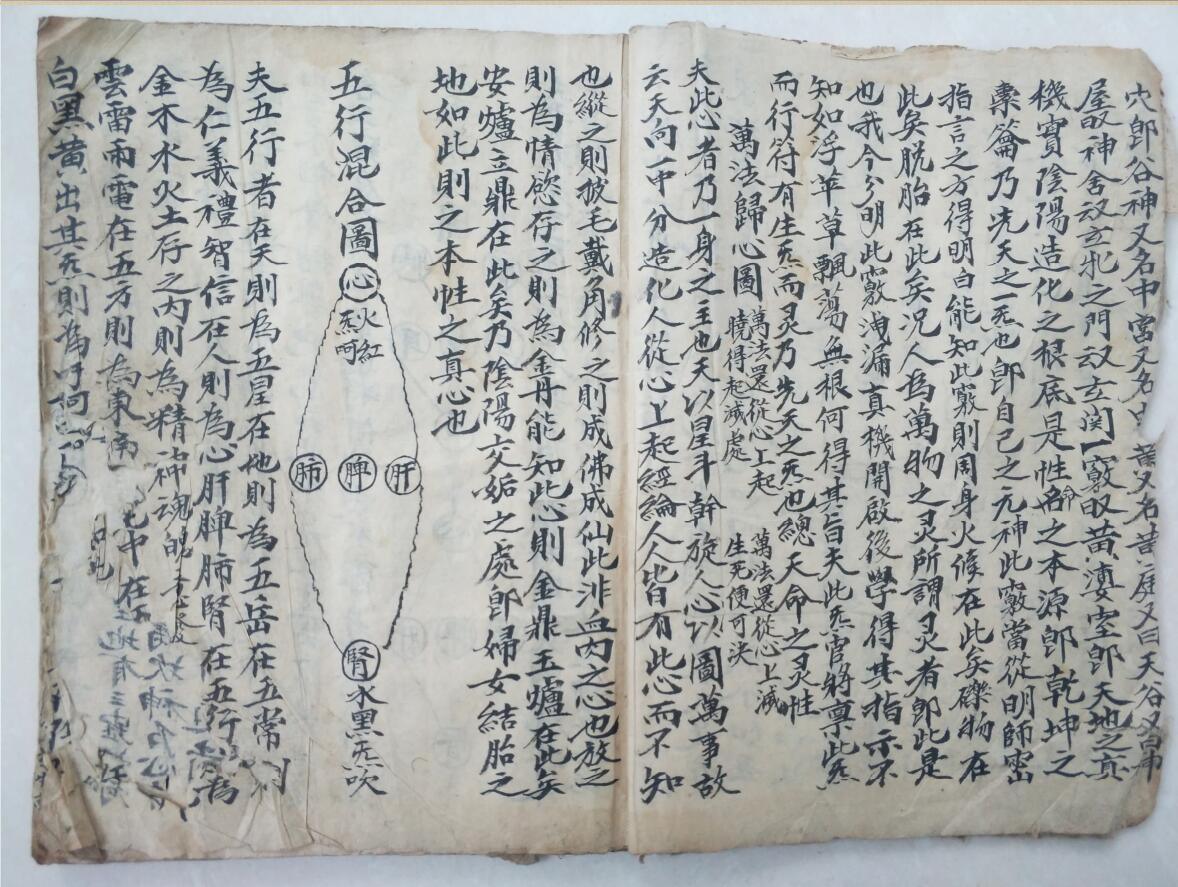 穴郎谷神又名中當又名中黄又名黄庭又曰天谷又
屋䀚神舍㕕玄牝之門㕕玄関一竅㕕黄㣥室郎天地之真
機實陰陽造化之根底是性命之本源郎乾坤之
橐籥乃先天之一炁也郎自己之元神此竅當從明師密
指言之方得明白能知此竅則周身火候在此矣礫物在
此矣脱胎在此矣况人為萬物之灵所謂灵者郎此是
也我今分明此竅洩漏真機開啟後學得其指示不
知如浮苹草飄蕩無根何得其旨夫此炁官將禀此炁
而行符有生炁而灵乃先天之炁也總天命之灵性
萬法歸心圖
萬法還從心上起
曉得起滅處
萬法還從心上滅
生死便可决
夫此心者乃一身之主也天以星斗幹旋人心以圖萬事故
云天向一中分造化人從心上起經綸人人皆有此心而不知
也縱之則披毛戴角修之則成佛成仙此非血肉之心也放之
則為情慾存之則為金丹能知此心則金鼎玉爐在此矣
安爐立鼎在此矣乃陰陽交姤之處郎婦女結胎之
地如此則之本性之真心也
五行混合圖
心
火紅
炁呵
肺
脾
肝
腎
水黑炁吹
夫五行者在天則為五星在地則為五岳在五常則
為仁義禮智信在人則為心肝脾肺腎在五行為
金木水火土存之内則為精神魂魄
雲雷雨電在五方則為東南
白黑黄出其炁則為吁呵